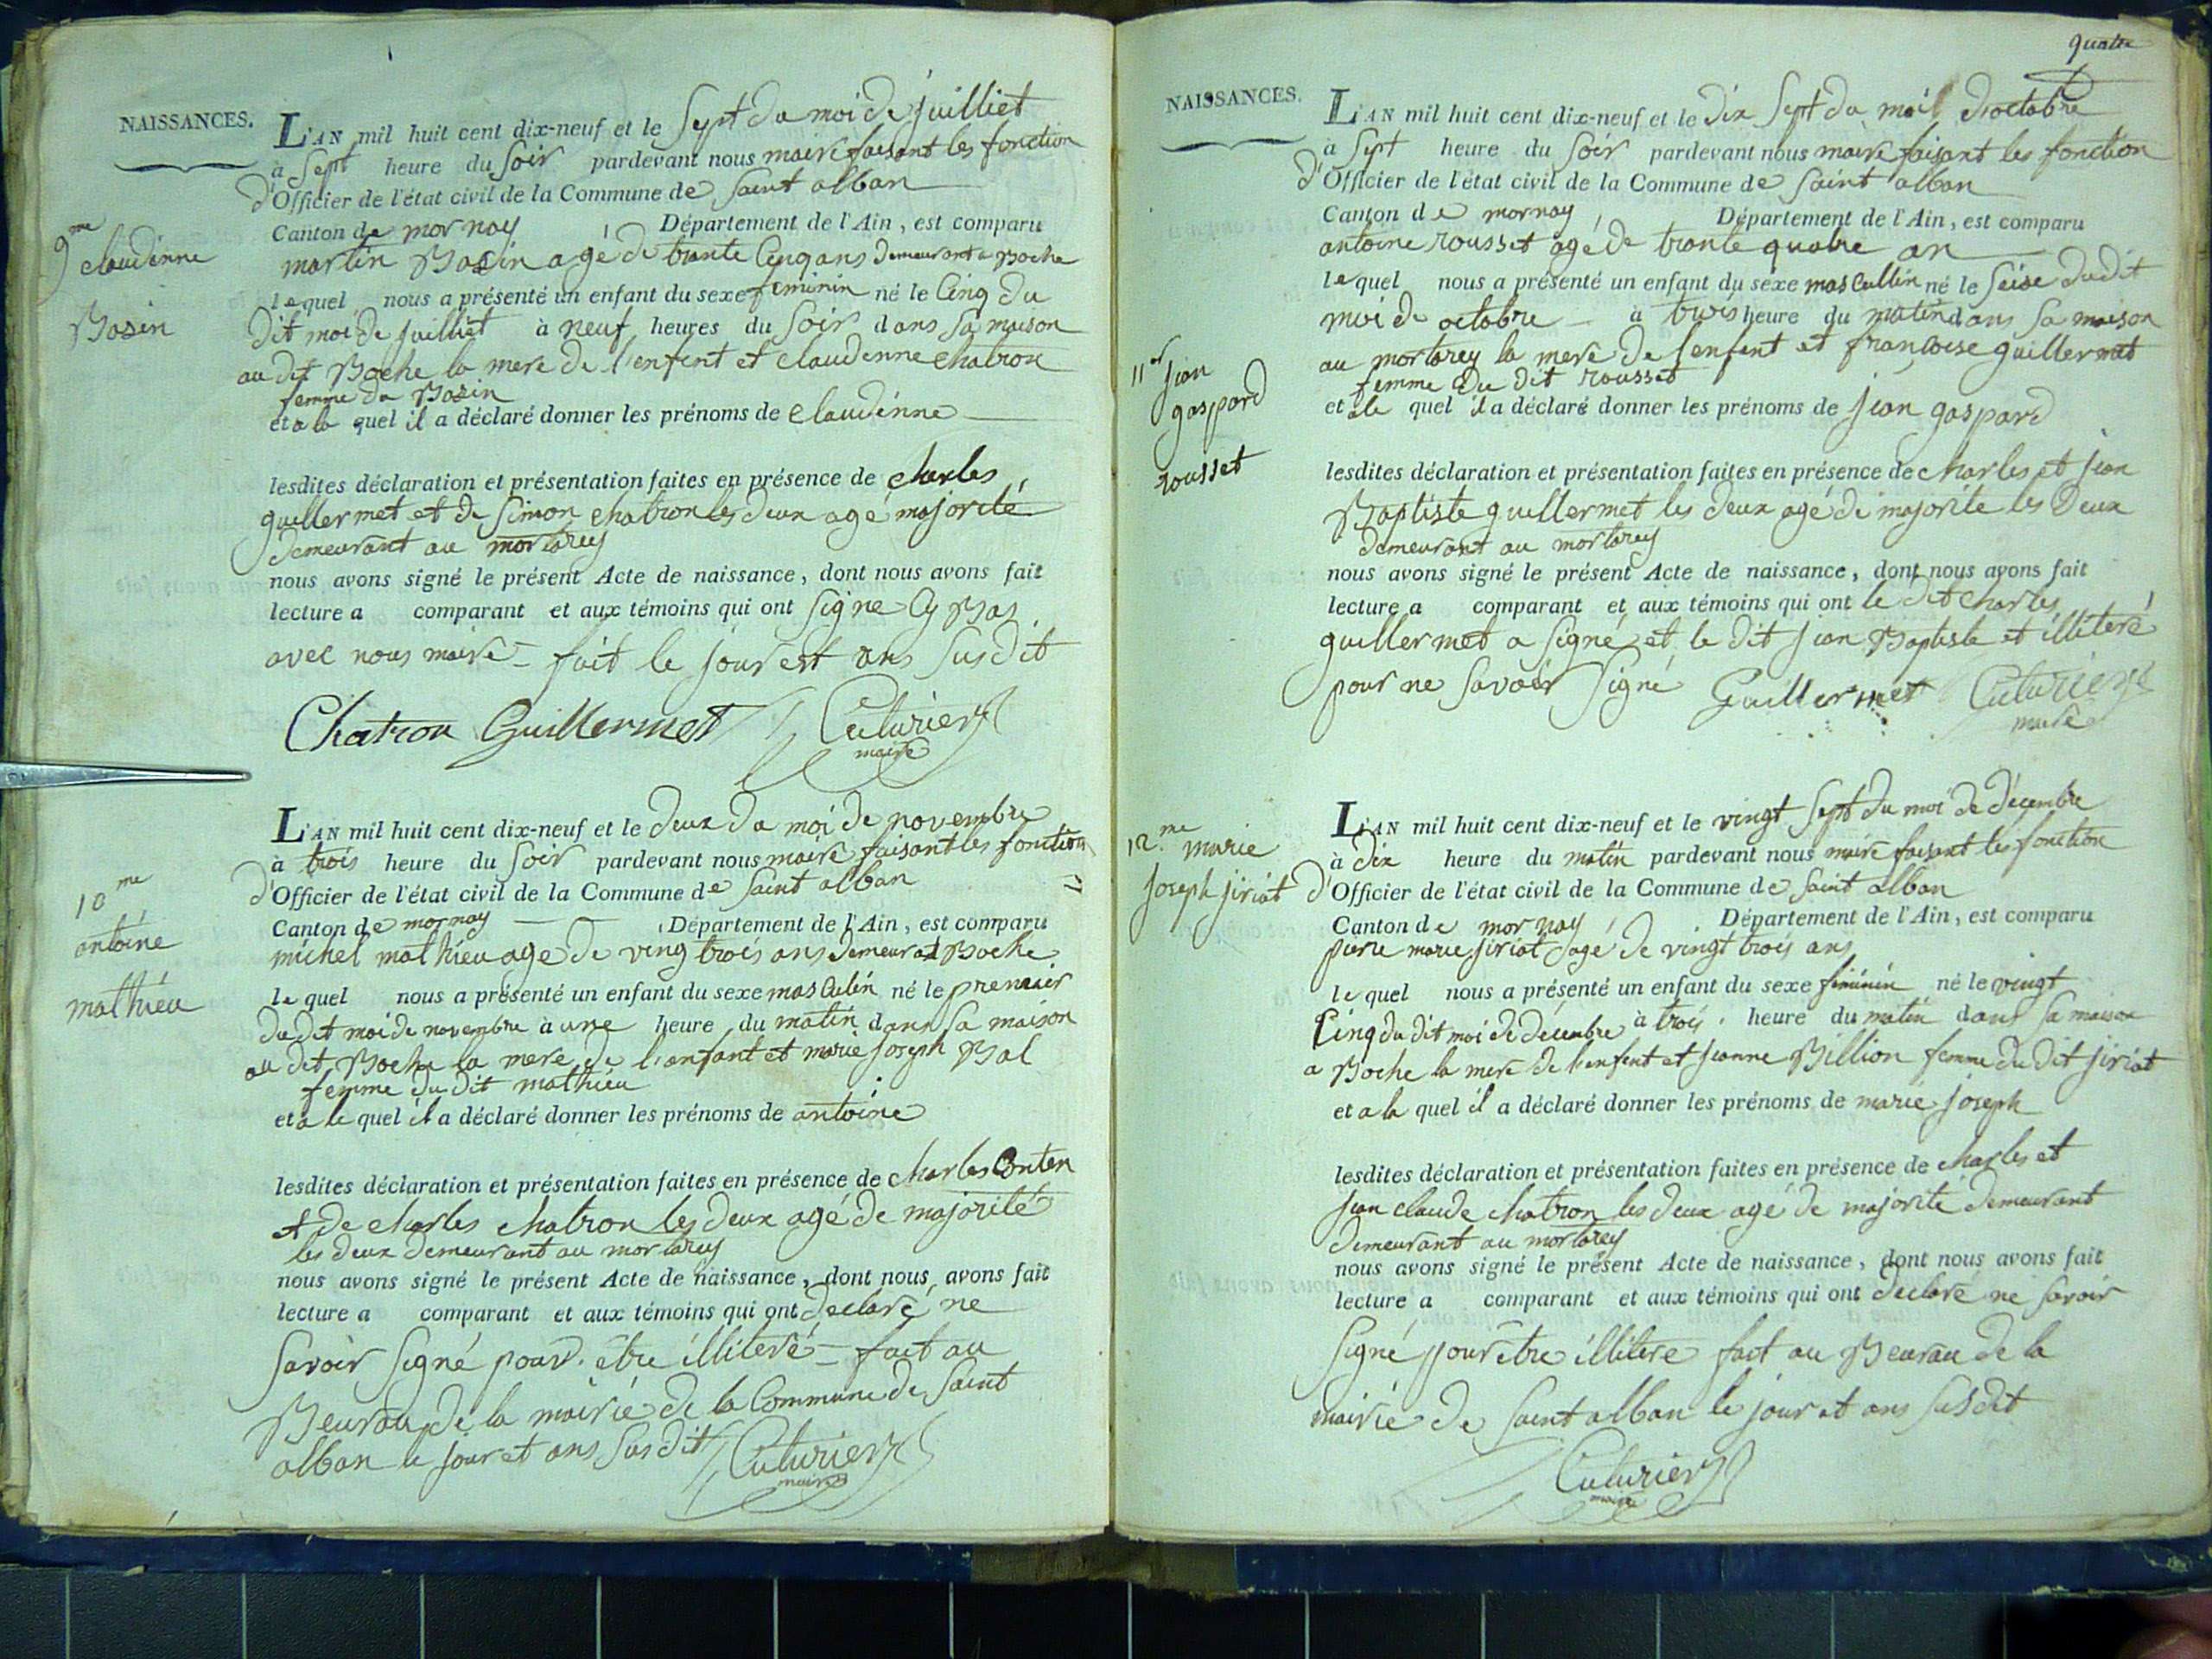 NAISSANCES.
L'AN mil huit cent dix-neuf et le Sept du moi de juilliet
à Sept heure du Soir pardevant nous maire faisant les fonction
d'Officier de l'état civil de la Commune de Saint alban
Canton de mornay Département de l'Ain, est comparu
martin Bozin agé de trante Cinq ans demeurant a Boche
le quel nous a présenté un enfant du sexe feminin né le Cinq du
dit moi de juilliet à neuf heures du Soir dans Sa maison
au dit Boche la mere de l'enfent et claudenne chatron
femme du Bozin
et a la quel il a déclaré donner les prénoms de claudinne
lesdites déclaration et présentation faites en présence de charles
guillermet et de Simon chatron les deux agé majorité
demeurant au mortarey
nous avons signé le présent Acte de naissance, dont nous avons fait
lecture a comparant et aux témoins qui ont Signe Cy Bas
avec nous maire - fait le jour est ans Susdit
Chatron Guillermet Cuturier
maire
9me claudinne
Bosin
L'AN mil huit cent dix-neuf et le deux du moi de novembre
à trois heure du Soir pardevant nous maire faisant les fonction
d'Officier de l'état civil de la Commune de Saint alban
Canton de mornay Département de l'Ain, est comparu
michel mathieu age de ving trois ans demeurat Boche
le quel nous a présenté un enfant du sexe masculin né le premier
du dit moi de novembre à une heure du matin dans Sa maison
au dit Boche la mere de l'enfant et marie joseph Bal
femme du dit mathieu
et a le quel il a déclaré donner les prénoms de antoine
lesdites déclaration et présentation faites en présence de charles
et de charles chatron les deux agé de majorité
les deux demeurant au mortarey
nous avons signé le présent Acte de naissance, dont nous avons fait
lecture a comparant et aux témoins qui ont declaré ne
Savoir Signé pour être illiteré - fait au
Beurau de la mairie de la Commune de Saint
alban le jour et ans Susdit Cuturier
maire
10me
antoine
mathieu
quatre
NAISSANCES.
L'AN mil huit cent dix-neuf et le dix Sept du moi d'octobre
à Sept heure du Soir pardevant nous maire faisant les fonction
d'Officier de l'état civil de la Commune de Saint alban
Canton de mornay Département de l'Ain, est comparu
antoine rousset agé de trante quatre an
le quel nous a présenté un enfant du sexe mascullin né le Seise dudit
moi de octobre à trois heure du matin dans Sa maison
au mortarey la mere de l'enfent et francoise guillermet
femme du dit rousset
et a le quel il a déclaré donner les prénoms de jean gaspard
lesdites déclaration et présentation faites en présence de charles et jean
Baptiste guillermet les deux agé de majorité les deux
demeurant au mortarey
nous avons signé le présent Acte de naissance, dont nous avons fait
lecture a comparant et aux témoins qui ont le dit charles
guillermet a Signé et le dit jean Baptiste et illiteré
pour ne Savoir Signé Guillermet Cuturier
maire
11 jean
gaspard
rousset
L'AN mil huit cent dix-neuf et le vingt Sept du moi de décembre
à dix heure du matin pardevant nous maire faisant les fonction
d'Officier de l'état civil de la Commune de Saint alban
Canton de mornay Département de l'Ain, est comparu
pierre marie jiriat agé de vingt trois ans
le quel nous a présenté un enfant du sexe féminin né le vingt
Cinq du dit moi de décembre à trois heure du matin dans Sa maison
a Boche la mere de l'enfent et jeanne Billion femme du dit jiriat
et a la quel il a déclaré donner les prénoms de marie joseph
lesdites déclaration et présentation faites en présence de charles et
jean claude chatron les deux agé de majorité demeurant
demeurant au mortarey
nous avons signé le présent Acte de naissance, dont nous avons fait
lecture a comparant et aux témoins qui ont declaré ne Savoir
Signé pour être illitere fait au Beurau de la
mairie de Saint alban le jour et ans Susdit
Cuturier
maire
12.me marie
joseph jiriat